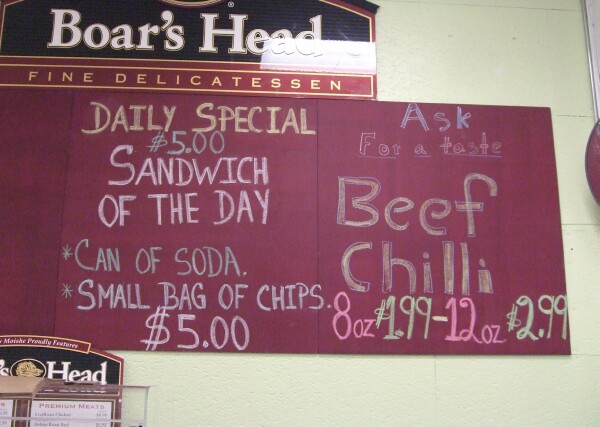 Boar's Head
FINE DELICATESSEN
DAILY SPECIAL
$5.00
SANDWICH
OF THE DAY
*CAN OF SODA.
*SMALL BAG OF CHIPS.
$5.00
Ask
For a taste
Beef
Chilli
8oz $1.99-12oz. $2.99
Moishe Proudly Features
Boar's Head
PREMIUM MEATS